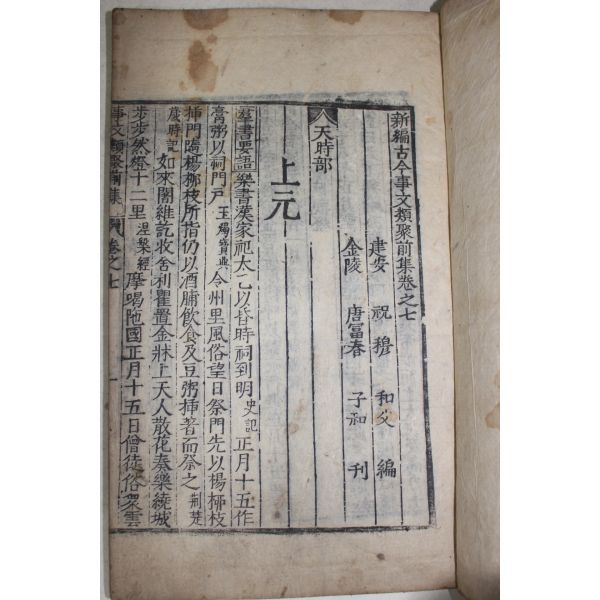 新編古今事文類聚前集卷之七
建安 祝穆 和父 編
金陵 唐富春 子和 刊
天時部
上元
羣書要語樂書漢家祀太乙以昏時祠到明史記正月十五作
膏粥以祠門戶玉燭寶典今州里風俗望日祭門先以楊柳枝
揷門隨楊柳枝所指仍以酒脯飮食及豆粥揷著而祭之荆楚
歲時記如來闍維訖收舍利罌置金牀上天人散花奏樂繞城
步步然燈十二里涅槃經摩竭陁國正月十五日僧徒俗衆雲
事文類聚前集 卷之七 一